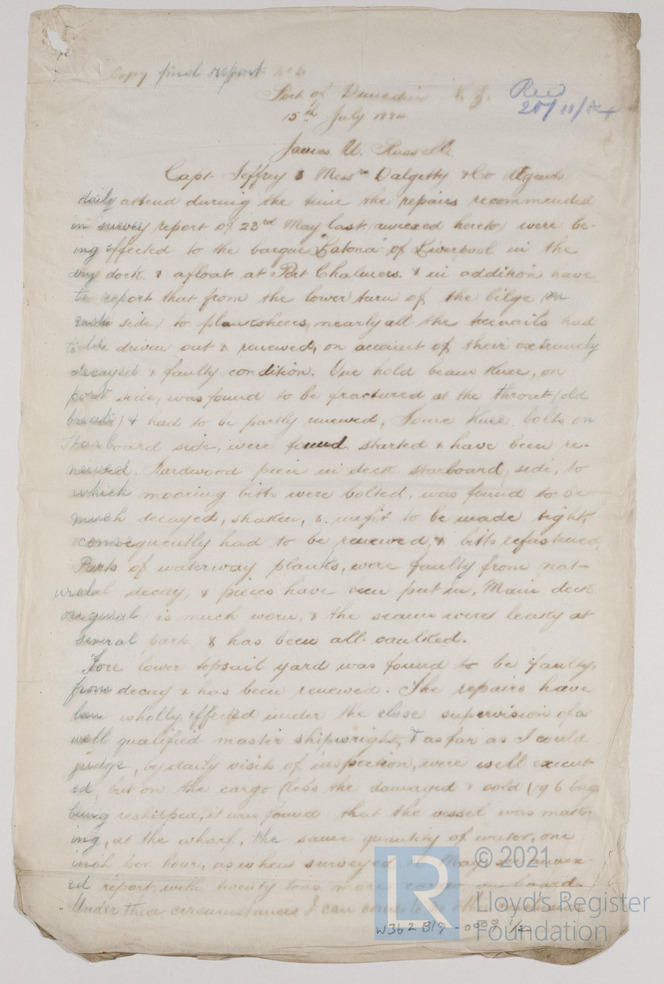 Copy final report No 2
Port of Dunedin N. Z.
15th July 1884
Rec
25/11/84
James U. Russell
Capt. Jeffrey & Messrs Dalgetty & Co Agents
daily attend during the time the repairs recommended
in survey report of 23rd May last, annexed hereto, were be-
ing effected to the barque "Catona" of Liverpool in the
dry dock & afloat at Port Chalmers. & in addition have
to report that from the lower turn of the bilge (on
side) to plansheers, nearly all the treenails had
to be driven out & renewed, on account of their extremely
decayed & faulty condition. One hold beam knee, on
port side, was found to be fractured at the throat (old
) & had to be partly renewed, Some knee bolts on
Starboard side, were found started & have been re-
newed. Hardwood piece in deck starboard side, to
which mooring bitts were bolted, was found to be
much decayed, shaken, & unfit to be made tight,
consequently had to be renewed & bitts refastened.
Parts of waterway planks, were faulty from nat-
ural decay, & pieces have been put in, Main deck
original) is much worn, & the seams were leaky at
several parts & has been all caulked.
Fore lower topsail yard was found to be faulty,
from decay & has been renewed. The repairs have
been wholly effected under the close supervision of a
well qualified master shipwright, & as far as I could
judge, by daily visits of inspection, were well execut-
ed, but on the cargo (less the damaged & sold (196 bags
being reshipped, it was found that the vessel was mak-
ing, at the wharf, the same quantity of water, one
inch per hour, as when surveyed in May see annex-
ed report, with twenty tons more cargo on board.
Under these circumstances I can come to no other
W362 B19 - 0009 1/2
R
© 2021
Lloyd's Register
Foundation